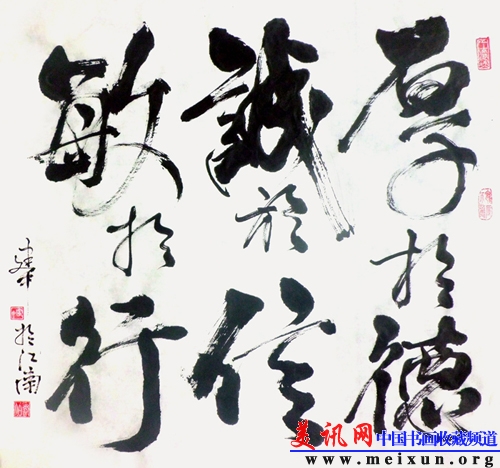 厚於德
誠於信
敏於行
於江南
美讯网
中国书画收藏频道
www.meixun.org